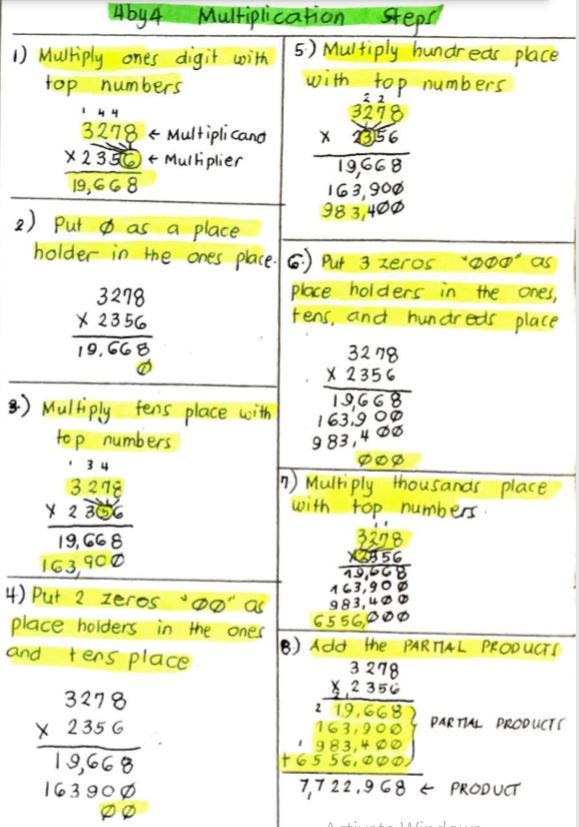 4by4 Multiplication Steps
1) Multiply ones digit with
top numbers
1 4 4
3278 ← Multiplicand
x 2356 ← Multiplier
19,668
2) Put Ø as a place
holder in the ones place.
3278
x 2356
19,668
Ø
3) Multiply tens place with
top numbers
1 3 4
3278
x 2356
19,668
163,90Ø
4) Put 2 zeros "ØØ" as
place holders in the ones
and tens place
3278
x 2356
19,668
16390Ø
ØØ
5.) Multiply hundreds place
with top numbers
2 2
3278
x 2356
19,668
163,90Ø
983,4ØØ
6.) Put 3 zeros "ØØØ" as
place holders in the ones,
tens, and hundreds place
3278
x 2356
19,668
163,90Ø
983,4ØØ
ØØØ
7) Multiply thousands place
with top numbers.
1 1
3278
x 2356
19,668
163,90Ø
983,4ØØ
6556,ØØØ
8.) Add the PARTIAL PRODUCTS
3278
x 2356
2 2
19,668
163,90Ø
PARTIAL PRODUCTS
1
983,4ØØ
+6556,000
7,722,968 ← PRODUCT